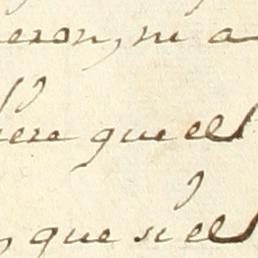 eron, ni a
iere que el
, que si el